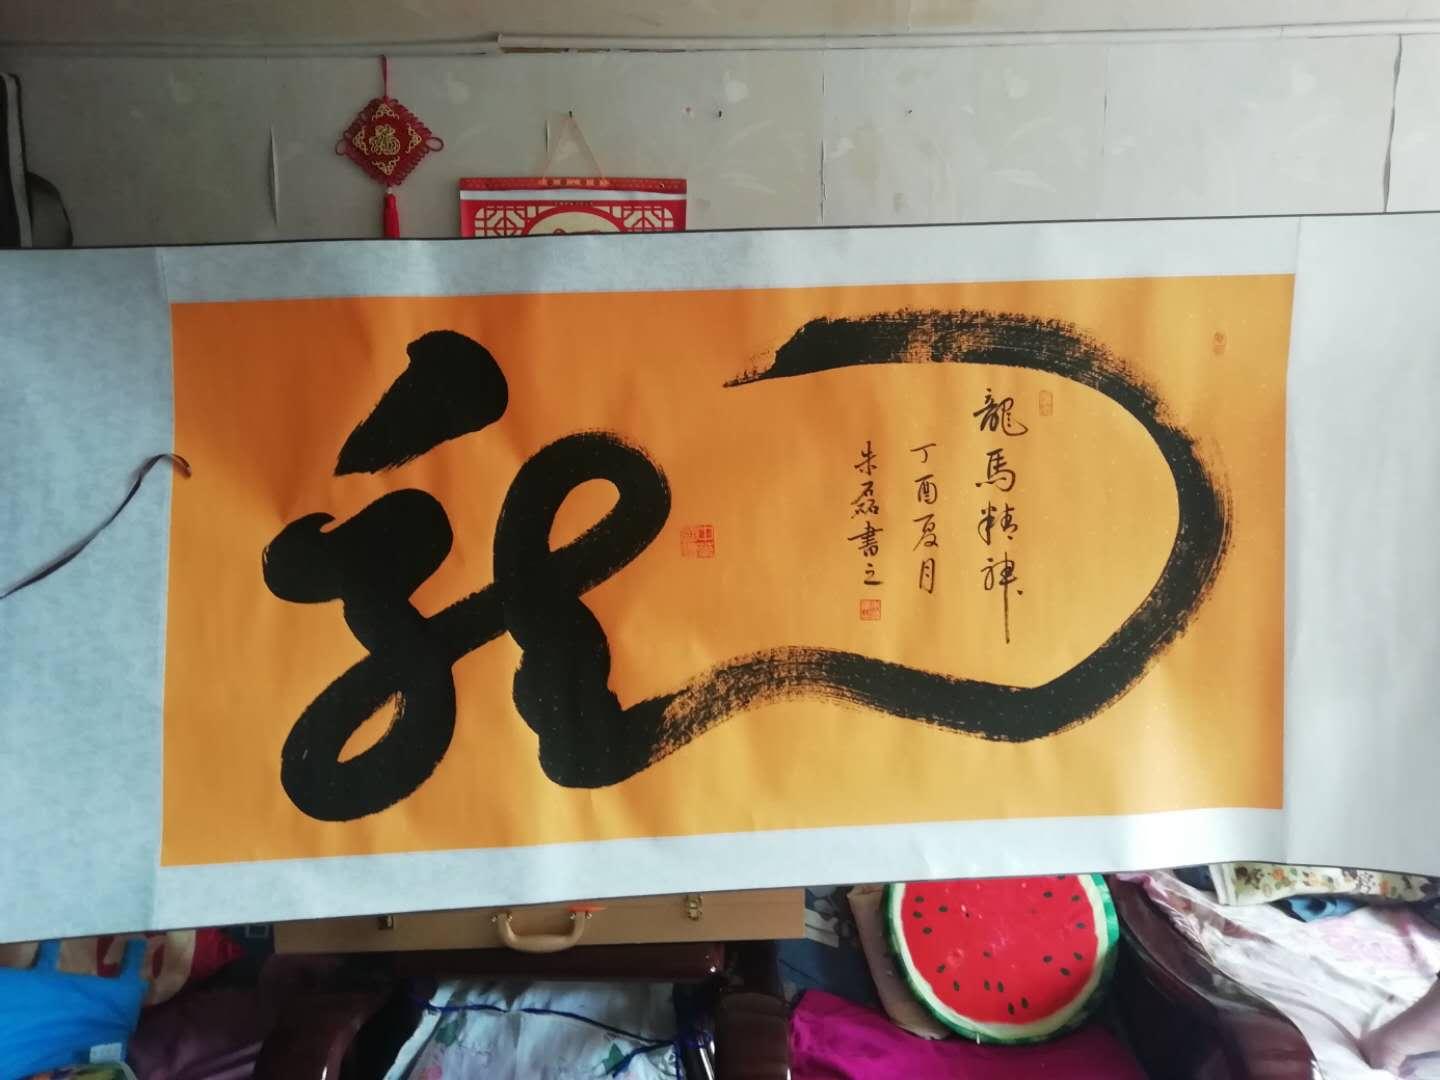 福
龍
龍馬精神
丁酉夏月
朱磊書之